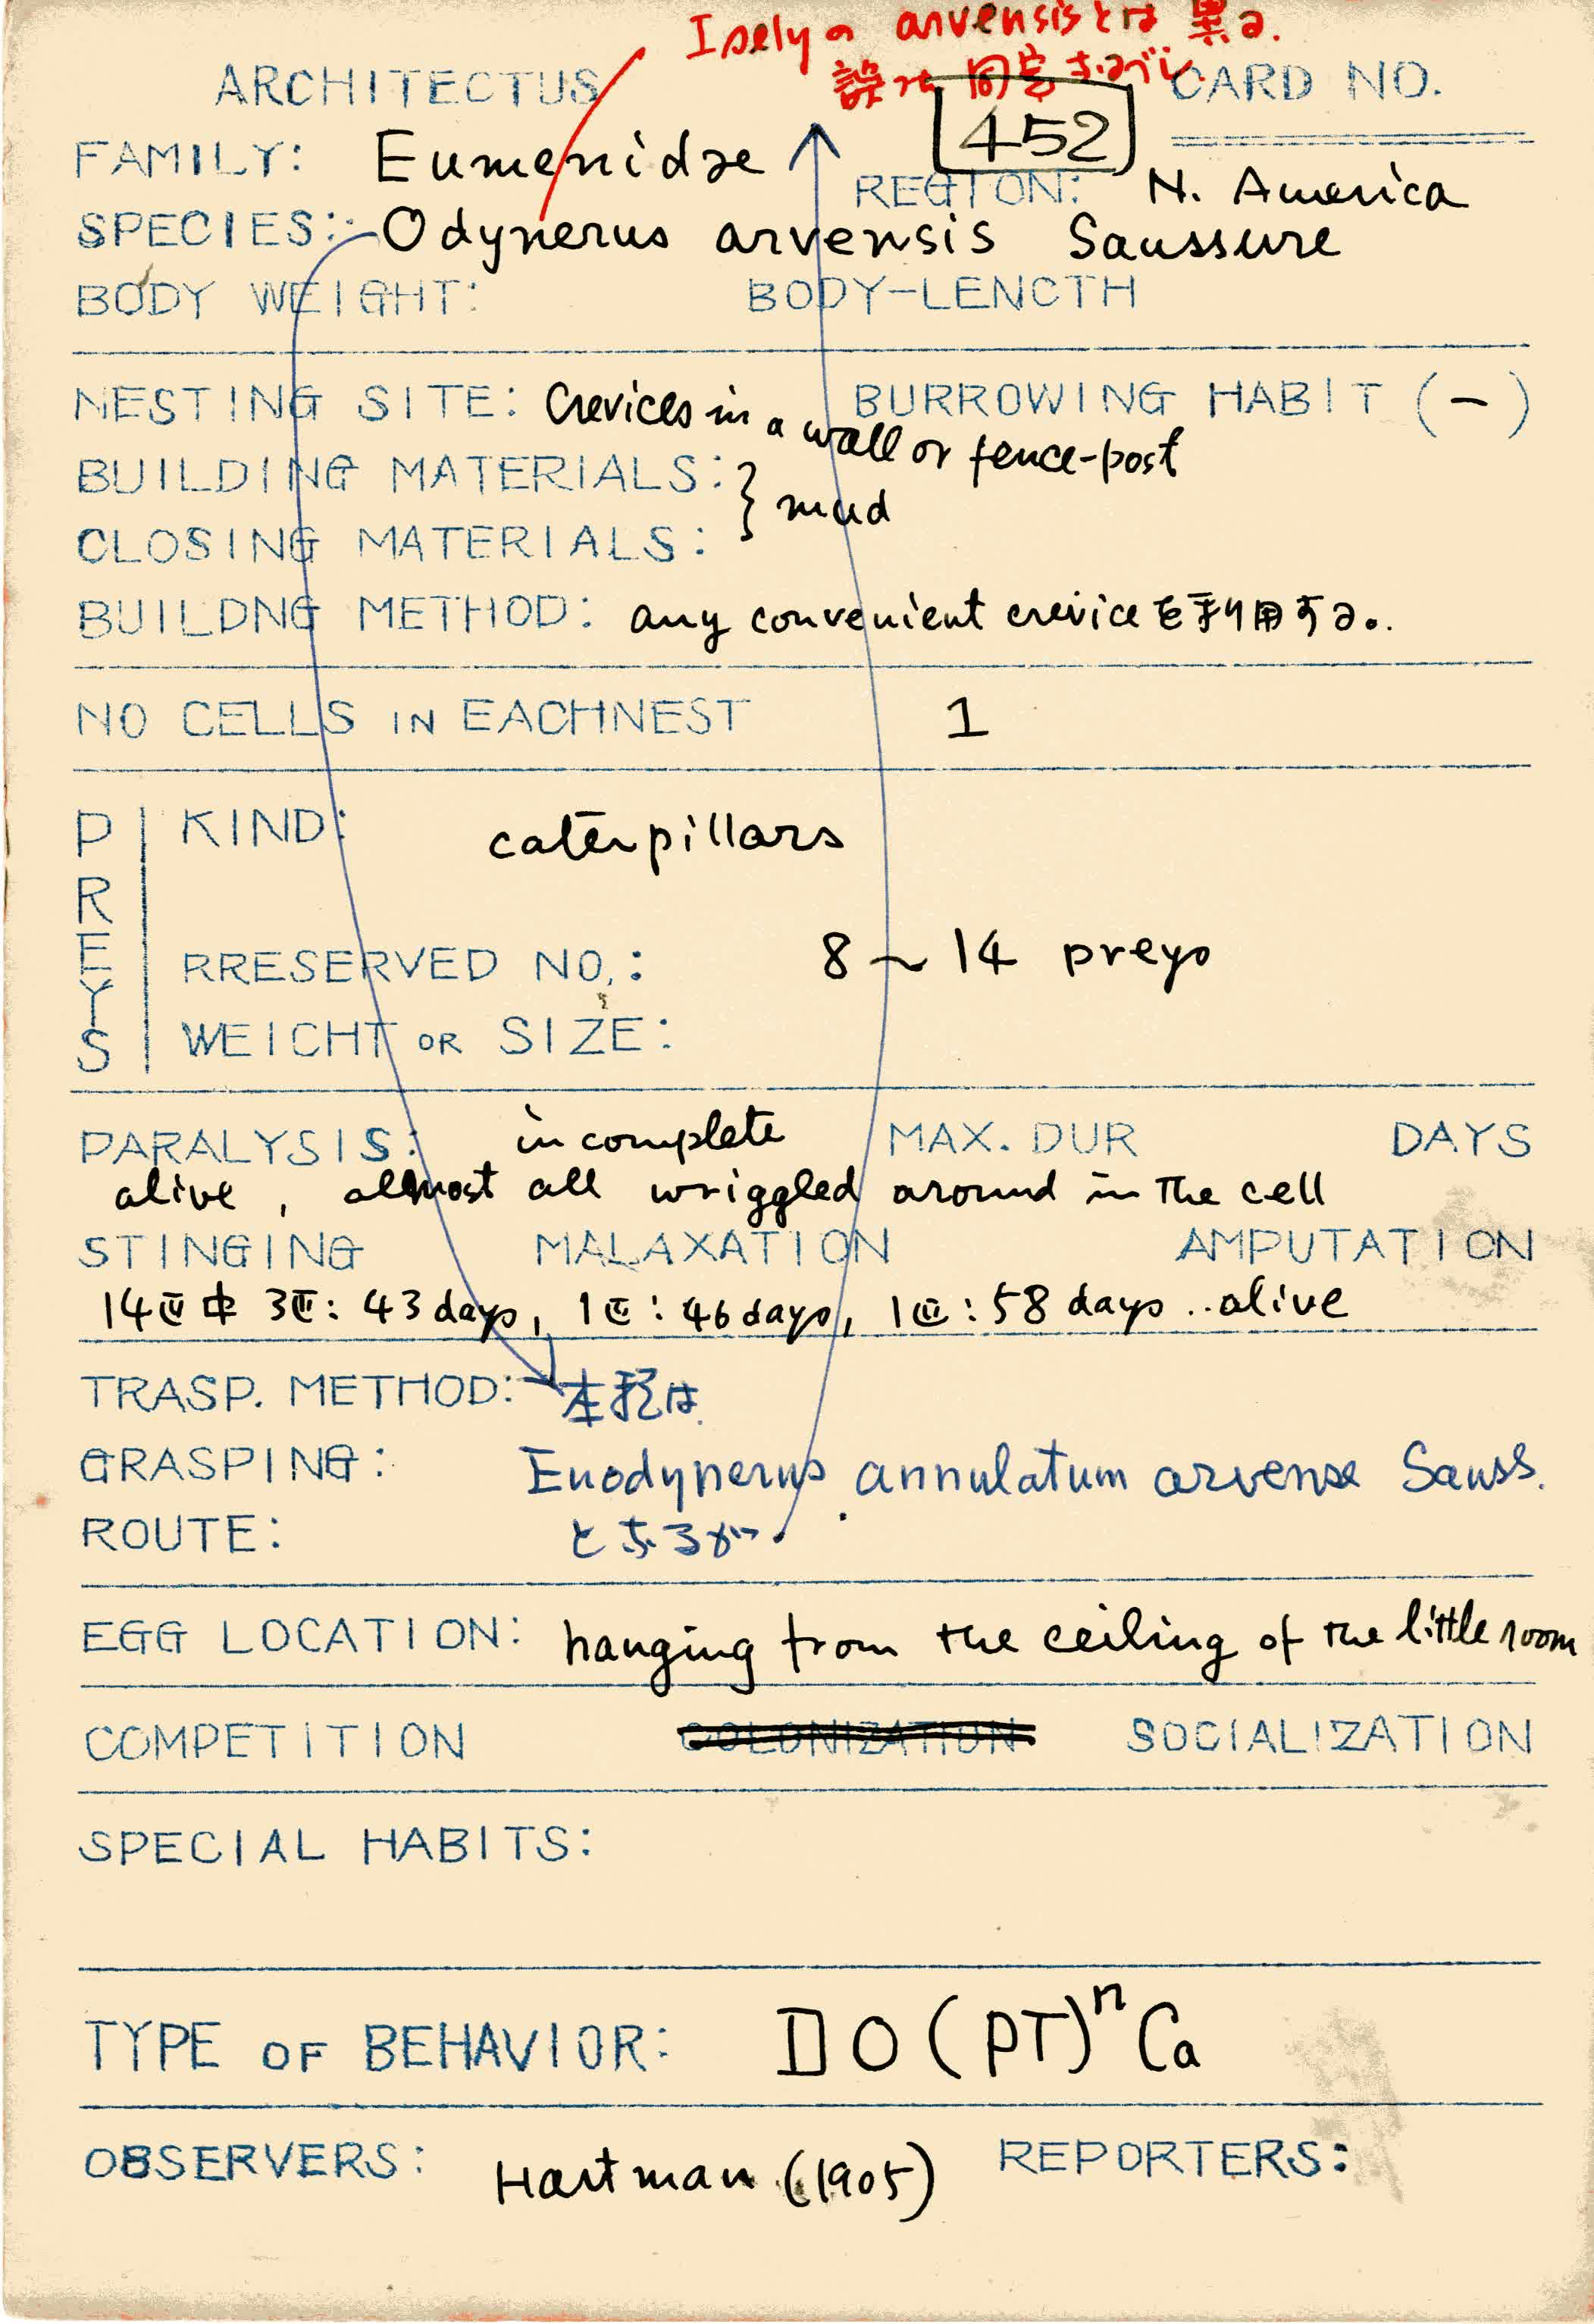 Iselyの arvensisとは異る.
誤って同定するべし.
ARCHITECTUS
CARD NO.
452
FAMILY: Eumenidae
REGION: N. America
SPECIES: Odynerus arvensis Saussure
BODY WEIGHT: BODY-LENCTH
NESTING SITE: Crevices in a wall or fence-post
BURROWING HABIT (-)
BUILDING MATERIALS: } mud
CLOSING MATERIALS:
BUILDNG METHOD: any convenient creviceを利用する.
NO CELLS IN EACHNEST 1
PREYS
KIND: caterpillars
RRESERVED NO.: 8~14 preys
WEICHT OR SIZE:
PARALYSIS: incomplete MAX. DUR DAYS
alive, allmost all wriggled around in the cell
STINGING MALAXATION AMPUTATION
14匹中 3匹: 43 days, 1匹: 46 days, 1匹: 58 days ..alive
TRASP. METHOD: 本種は
GRASPING: Euodynerus annulatum arvense Sauss.
ROUTE: とあるが
EGG LOCATION: hanging from the ceiling of the little room
COMPETITION COLONIZATION SOCIALIZATION
SPECIAL HABITS:
TYPE OF BEHAVIOR: IO(PT)ⁿCa
OBSERVERS: Hartman (1905) REPORTERS: